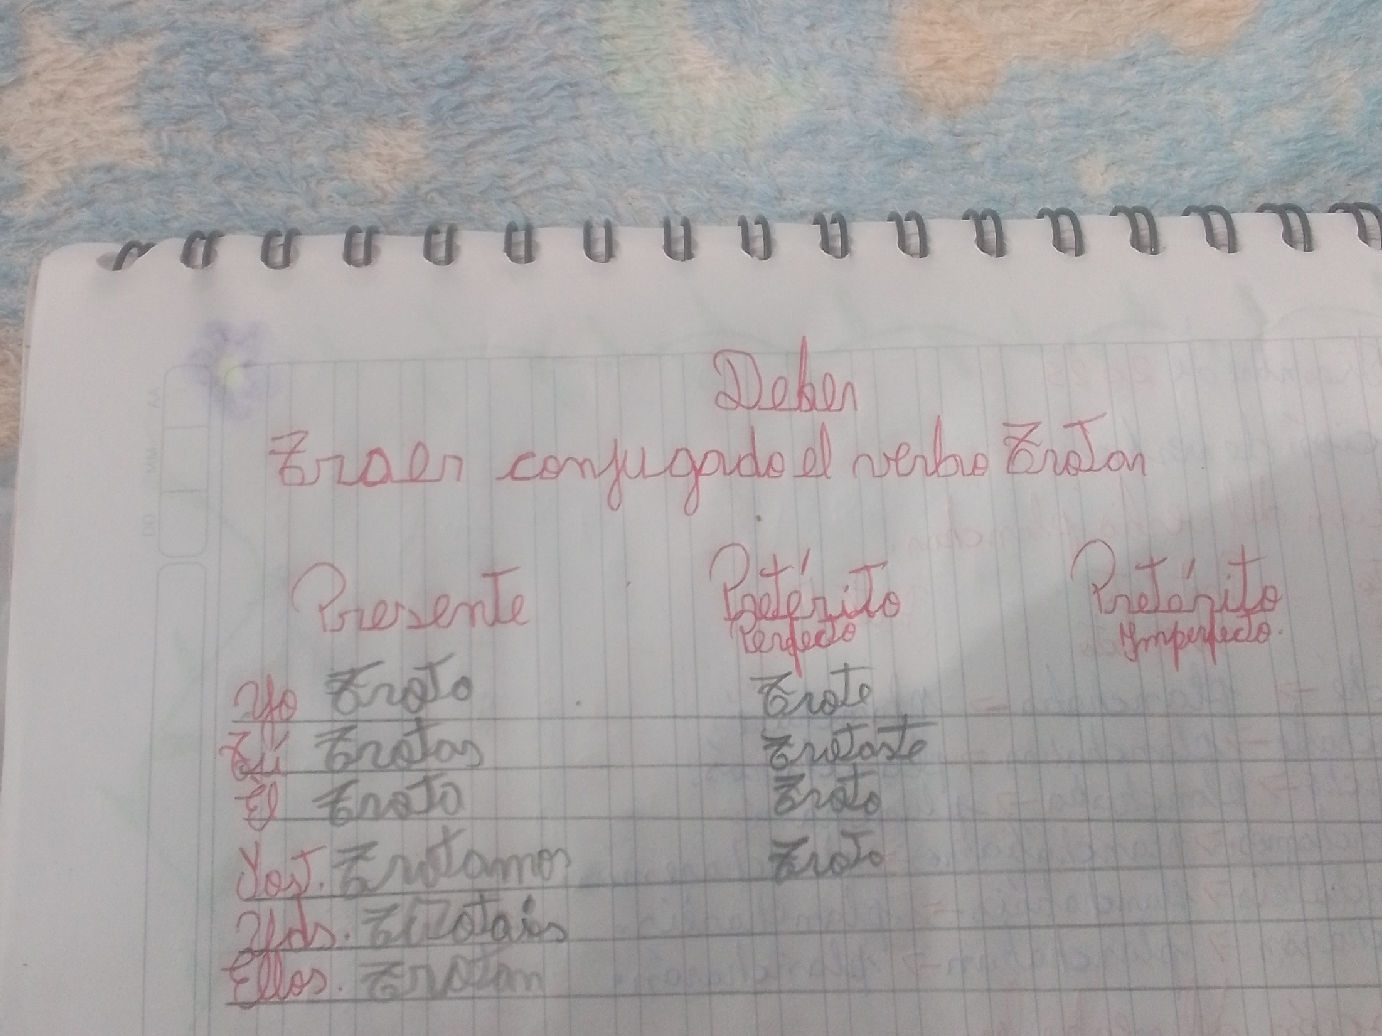 Deber
Traer conjugado el verbo Trotar
Presente Pretérito Perfecto Pretérito Imperfecto.
Yo Troto Trote
Tú Trotas Trotaste
Él Troto Troto
Nos. Trotamos Troto
Uds. Trotais
Ellos. Trotan